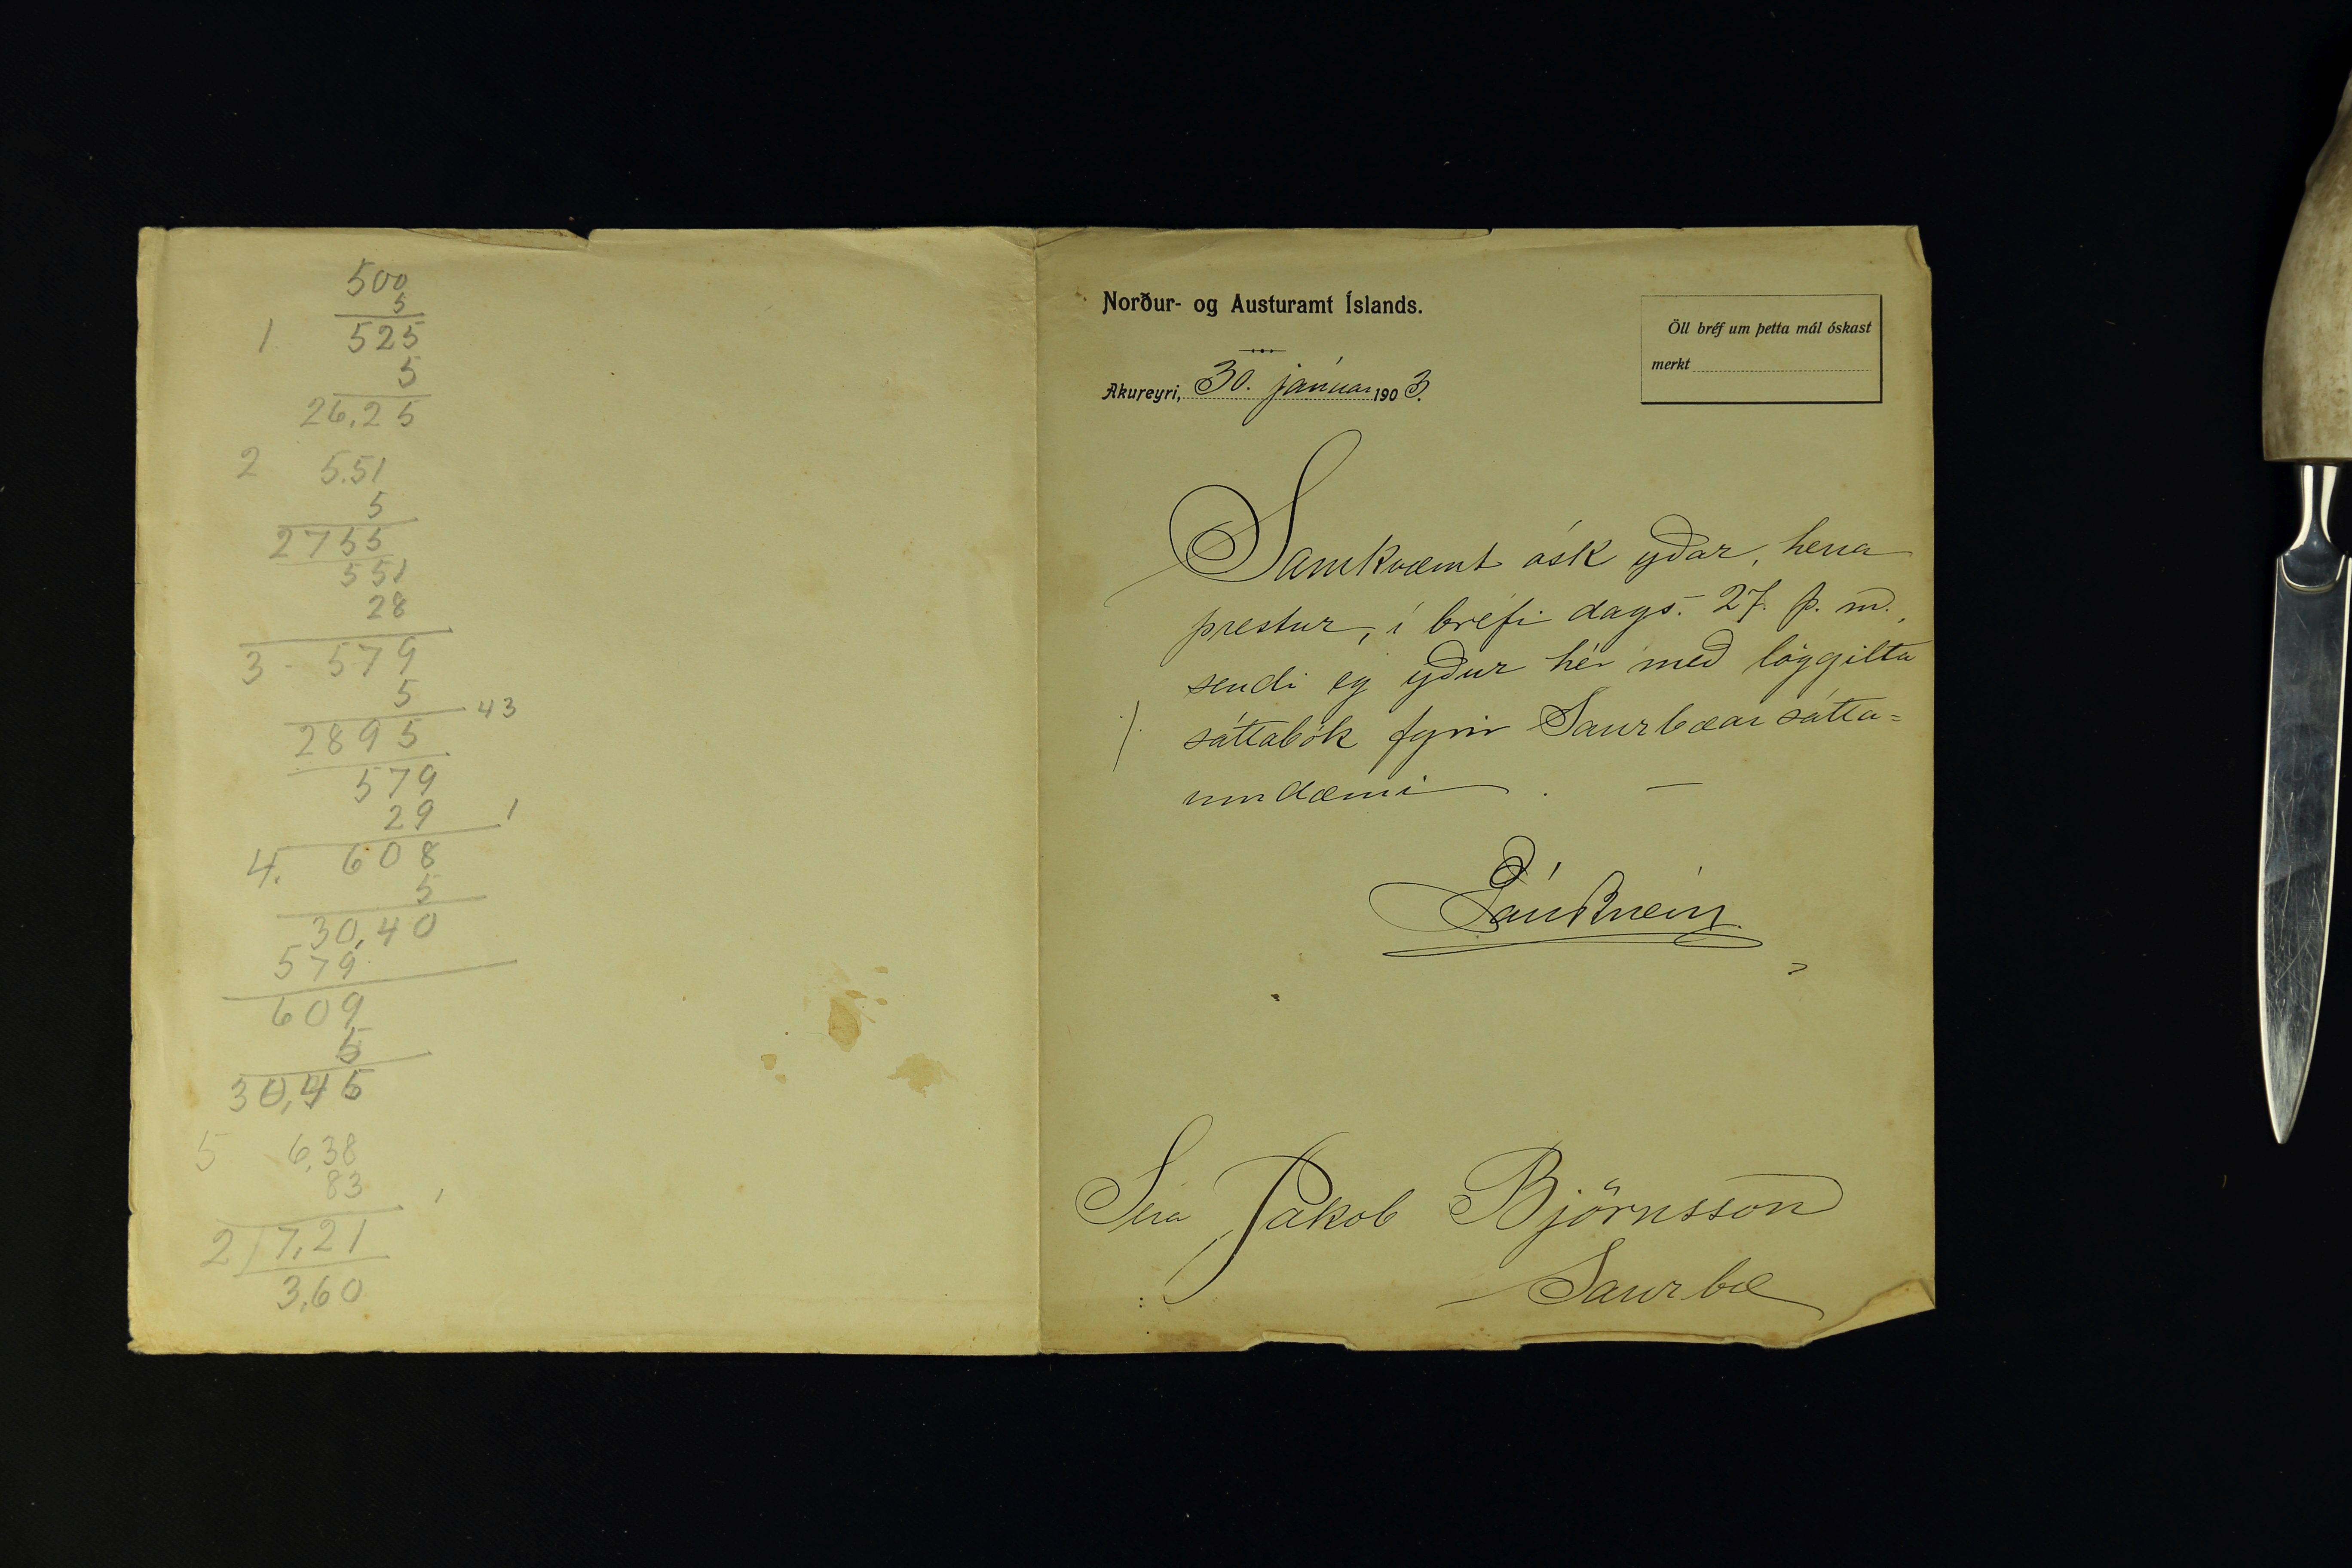 500
5
1 525
5
26.25
2 5.51
5
2755
551
28
3 - 579
5
43
2895
579
29
1
4. 608
5
30,40
579
609
5
30,45
5 6,38
83
2/7,21
3,60
Norður- og Austuramt Íslands.
Öll bréf um þetta mál óskast
merkt
Akureyri, 30. janúar 1903.
Samkvæmt ósk yðar, herra
prestur, í bréfi dags. 27. þ. m.,
sendi eg yður hér með löggilta
./. sáttabók fyrir Saurbæar sátta=
umdæmi. —
Páll Briem
Séra Jakob Björnsson
Saurbæ